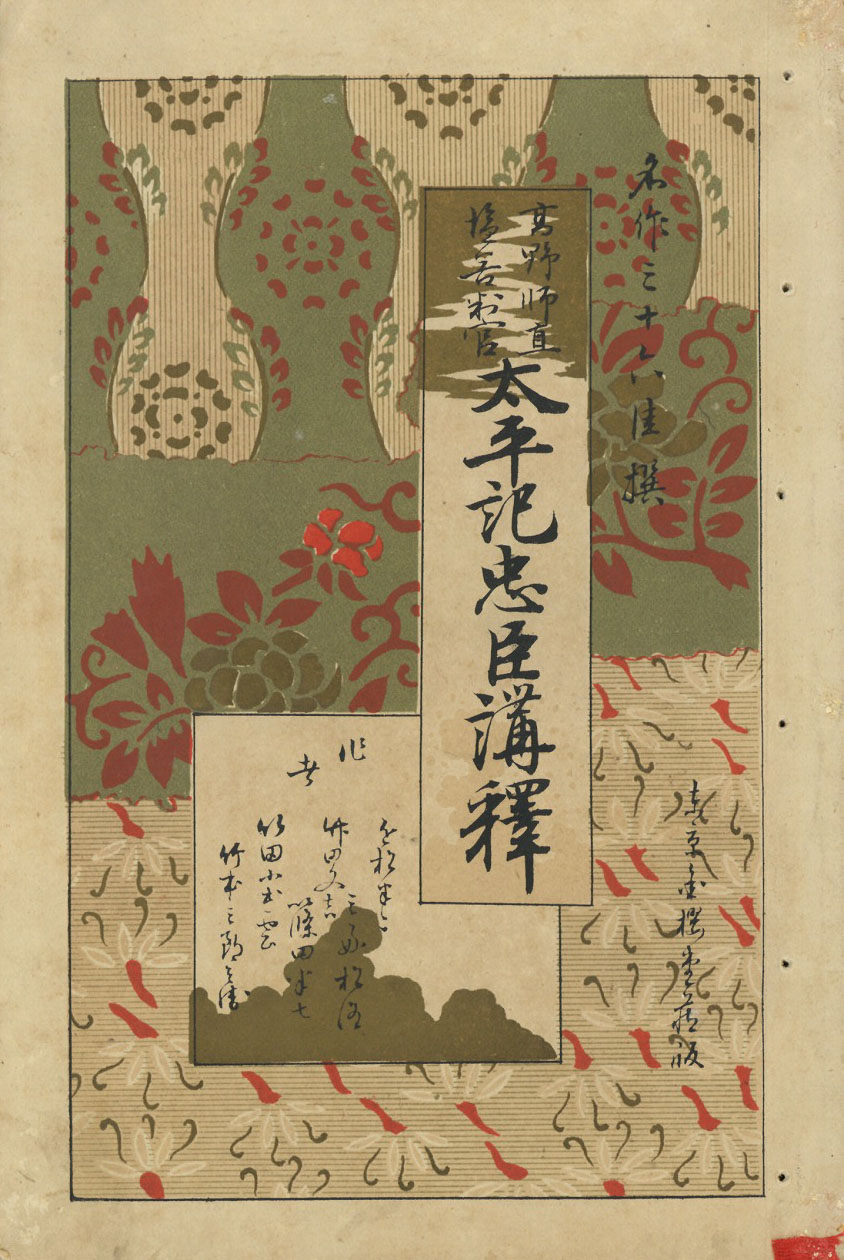 名作三十六佳撰
高野師直
塩谷判官
太平記忠臣講釋
作者
近松半二
三好松洛
竹田文吉
篠田半七
竹田小出雲
竹本三郎兵衛
東京金櫻堂蔵版